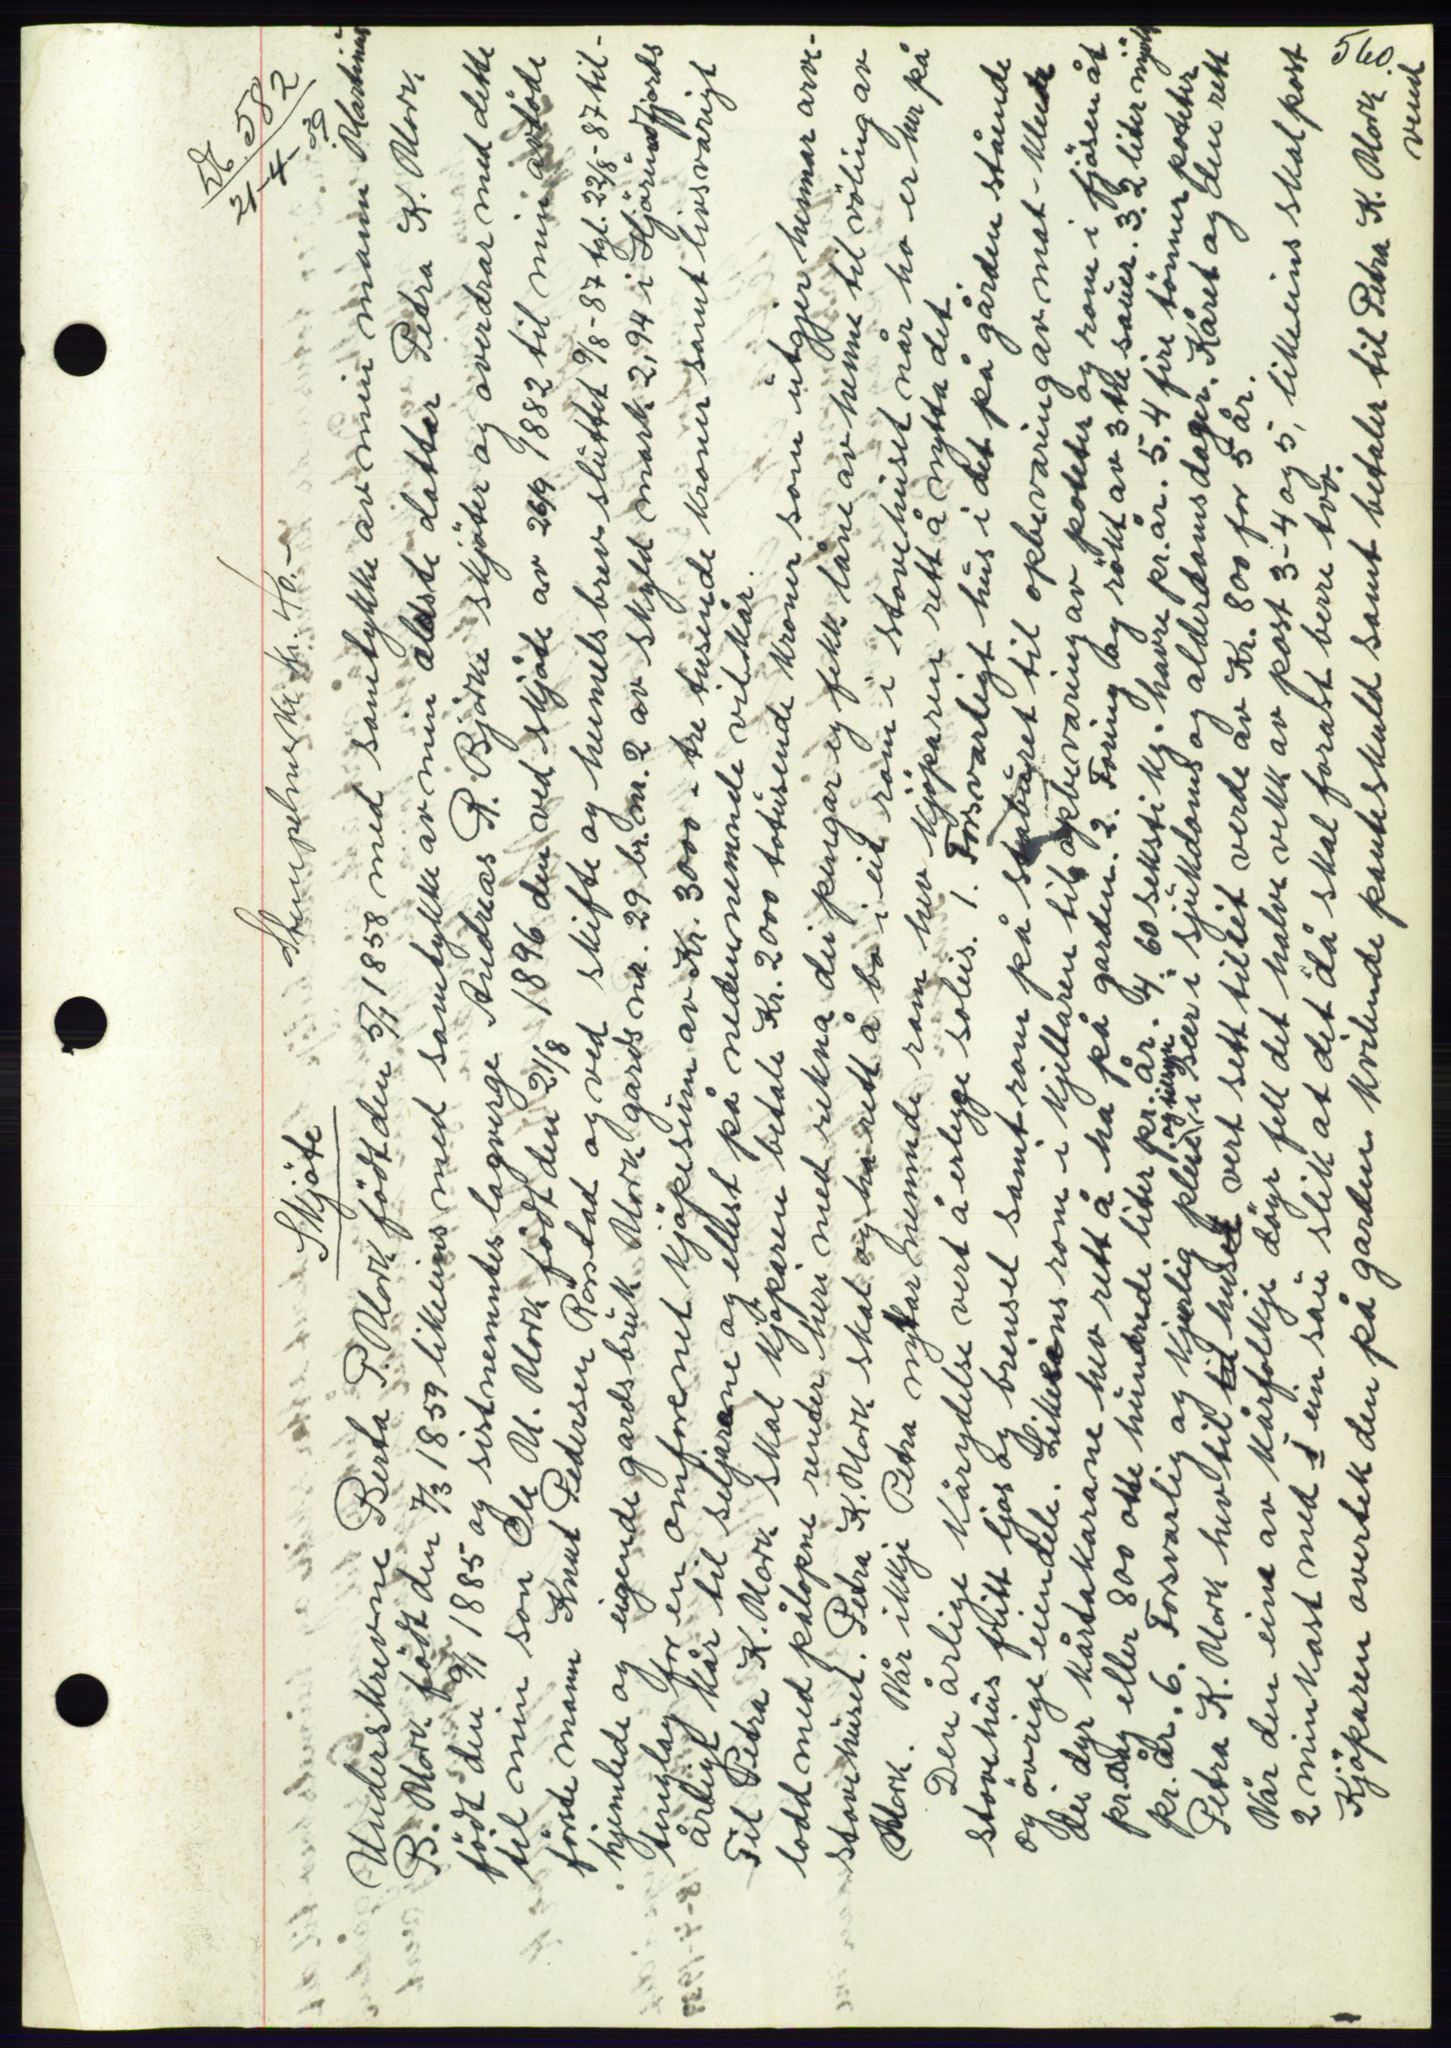 N 582
21-4-39
Stempelmerke Kr. 40.-
Skjöte
Underskrevne Berta P. Mork födt den 5/1 1858 med samtykke av min mann Martinus
B. Mork födt den 7/3 1859 likeeins med samtykke av min aldste datter Petra K. Mork
födt den 9/1 1885 og sistnemntes lagverge Andreas R. Björke skjöter og overdrar med dette
til min son Ole M. Mork födt den 21/8 1896 den ved skjöte av 26/9 1882 til min avlöde
förste mann Knut Pedersen Romstad og ved skifte og heimelsbrev sluttet 9/8-87 tgl. 22/8-87 til-
hjemlede og eigende gardsbruk Mork gards nr. 29 br. nr. 2 av skyld mark 2,94 i Hjörundfjords
tinglag for en omforenet kjöpesum av Kr. 3000 - tre tusende kroner samt livsvarigt
årligt kår til seljarene og ellest på nedennemnde vilkår.
Til Petra K. Mork skal kjöparen betale Kr. 2000 totusende kroner som utgjer hennar arve-
lodd med pålöpne render heri med rekna dei pengar eg fekk låne av henne til völing av
stovehuset. Petra K. Mork skal og ha rett å bo i eit rom i stovehuset når ho er her på
Mork. Når ikkje Petra nyttar nemnde rom hev kjöparen rett å nytta det.
Den årlige kårydelse vert å erlegge soleis. 1. Forsvarligt hus i det på gården stående
stovehus fritt ljos og brensel samt rom på stabüret til opbevaring av mat - klede
og övrige eiendele. Likeeins rom i kjellaren til opbevaring av poteter og rom i fjösen åt
dei dyr kårtakarane hev rett å ha på garden. 2. Foring og rökt av 3 tre sauer. 3. 2 liter mjölk
pr. dag eller 800 otte hundrede liter pr. år. 4. 60 seksti kg. havre pr. år. 5. 4 fire tönner poteter
pr. år. 6. Forsvarlig og kjerlig pleie og tilsyn i Beer i sjukdoms og alderdomsdager. Kåret og den rett
Petra K. Mork hev til huset vert sett til eit verde av Kr. 800 for 5 år.
Når den eine av kårfolkje döyr fell det halve vekk av post 3-4 og 5, likeeins skal post
2 minkast med 1 ein sau slik at det då skal forast berre tvo.
Kjöparen overtek den på garden kvilende panteskuld samt betaler til Petra K. Mork
560.
vend